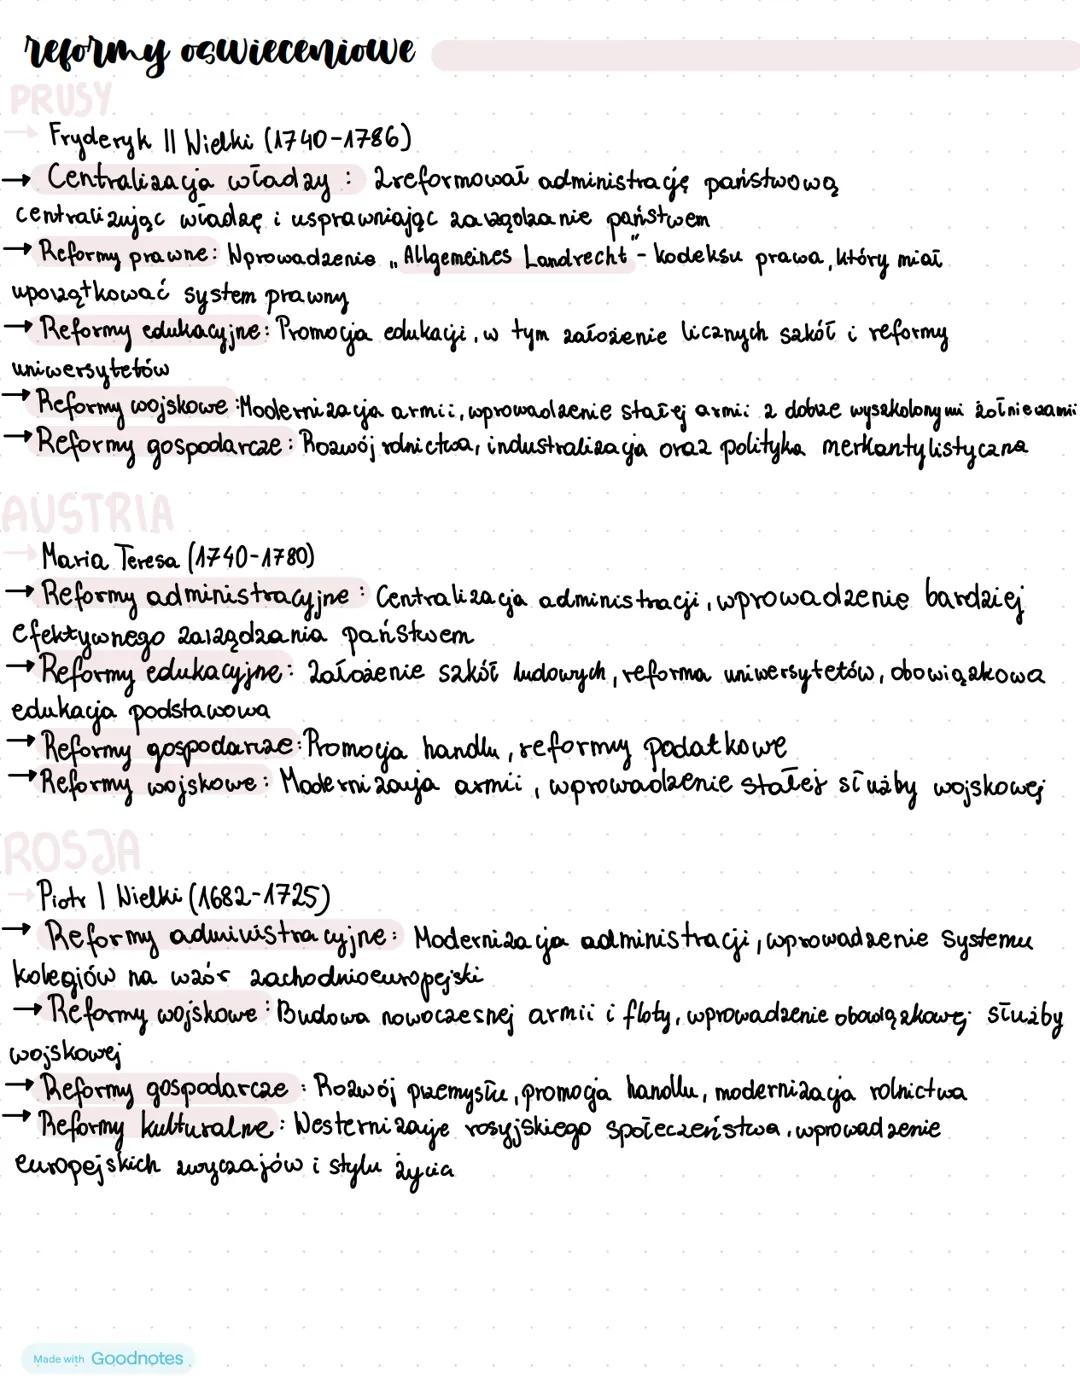 reformy oswieceniowe
PRUSY
→ Fryderyk II Wielki (1740-1786)
→ Centralizacja władzy : zreformował administrację państwową
centralizując władzę i usprawniając zarządzanie państwem
→ Reformy prawne: Wprowadzenie „Allgemeines Landrecht" - kodeksu prawa, który miał
uporządkować system prawny
→ Reformy edukacyjne: Promocja edukacji, w tym założenie licznych szkół i reformy
uniwersytetów
→ Reformy wojskowe: Modernizacja armii, wprowadzenie stałej armii z dobrze wyszkolonymi żołnierzami
→ Reformy gospodarcze: Rozwój rolnictwa, industralizacja oraz polityka merkantylistyczna
AUSTRIA
→ Maria Teresa (1740-1780)
→ Reformy administracyjne: Centralizacja administracji, wprowadzenie bardziej
efektywnego zarządzania państwem
→ Reformy edukacyjne: Założenie szkół ludowych, reforma uniwersytetów, obowiązkowa
edukacja podstawowa
→ Reformy gospodarcze: Promocja handlu, reformy podatkowe
→ Reformy wojskowe: Modernizacja armii, wprowadzenie stałej służby wojskowej
ROSJA
→ Piotr I Wielki (1682-1725)
→ Reformy administracyjne: Modernizacja administracji, wprowadzenie systemu
kolegiów na wzór zachodnioeuropejski
→ Reformy wojskowe: Budowa nowoczesnej armii i floty, wprowadzenie obowiązkowej służby
wojskowej
→ Reformy gospodarcze: Rozwój przemysłu, promocja handlu, modernizacja rolnictwa
→ Reformy kulturalne: Westernizacje rosyjskiego społeczeństwa, wprowadzenie
europejskich zwyczajów i stylu życia
Made with Goodnotes